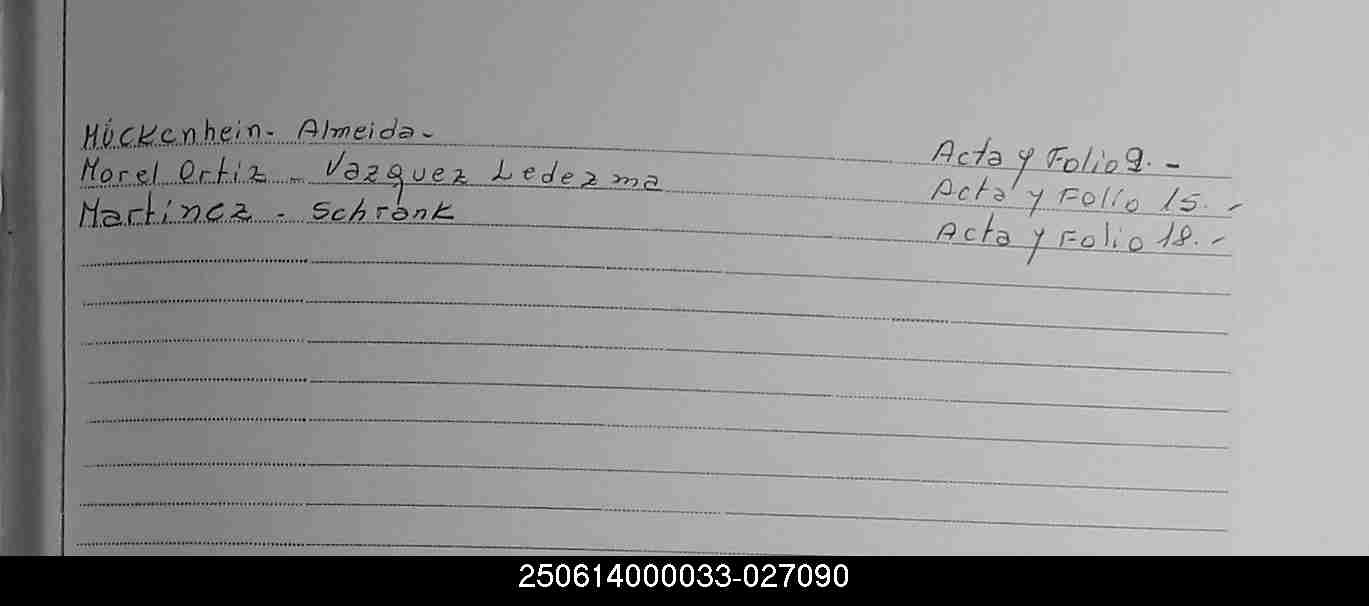 Mückenhein - Almeida - Acta y Folio 9. -
Morel Ortiz - Vazquez Ledezma Acta y Folio 15. -
Martinez - Schrank Acta y Folio 18. -
250614000033-027090